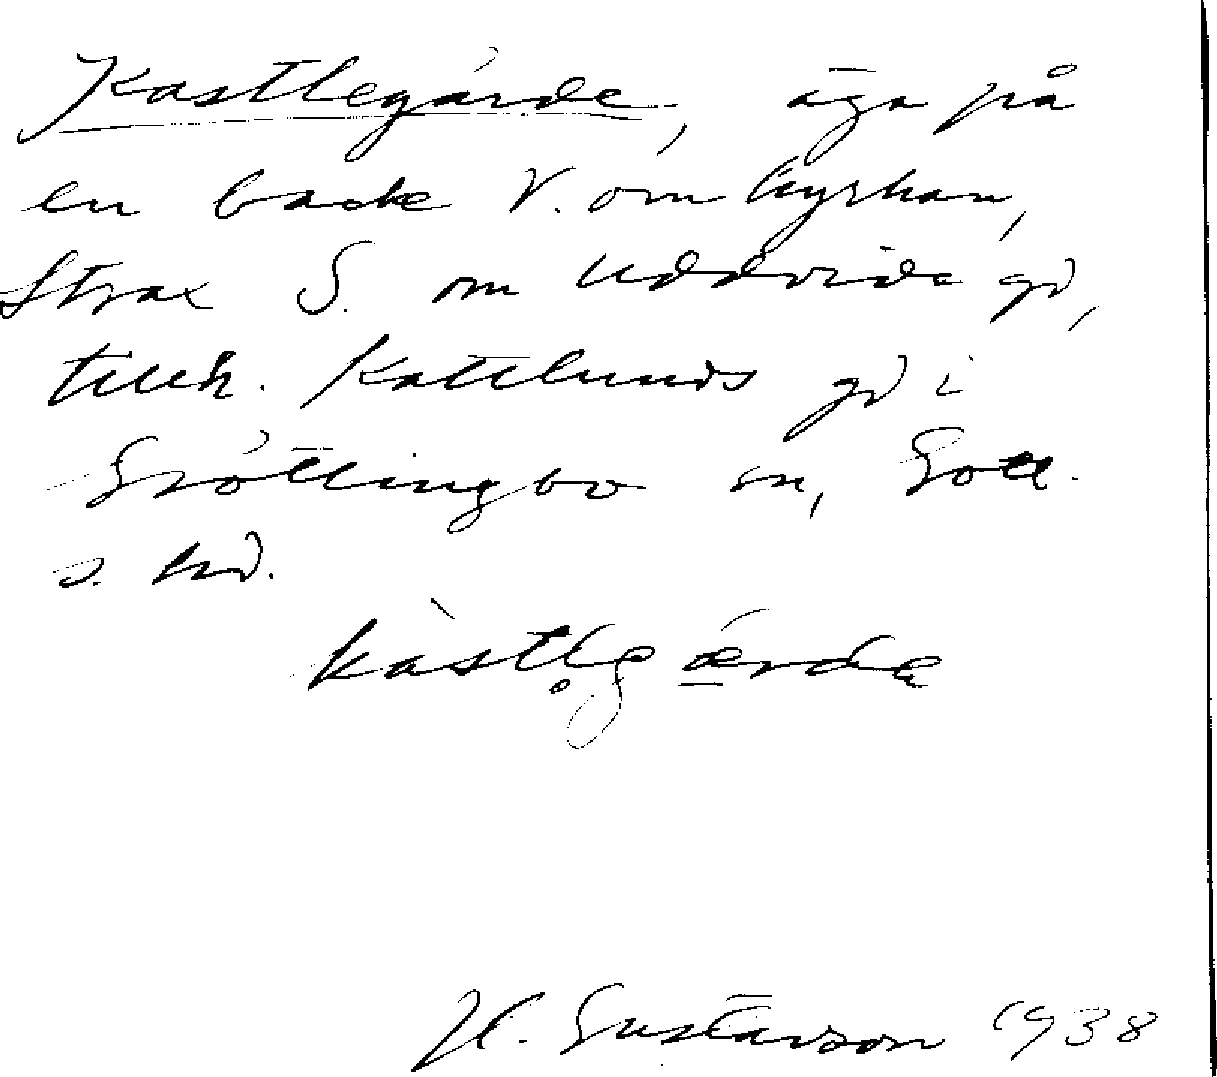 Kastlegärde, äga på
en backe V. om kyrkan,
strax S. om Uddvide gd,
tillh. Kattlunds gd i
Grötlingbo sn, Gotl.
s. hd.
kàstl̥gǽrdε
H. Gustavson 1938